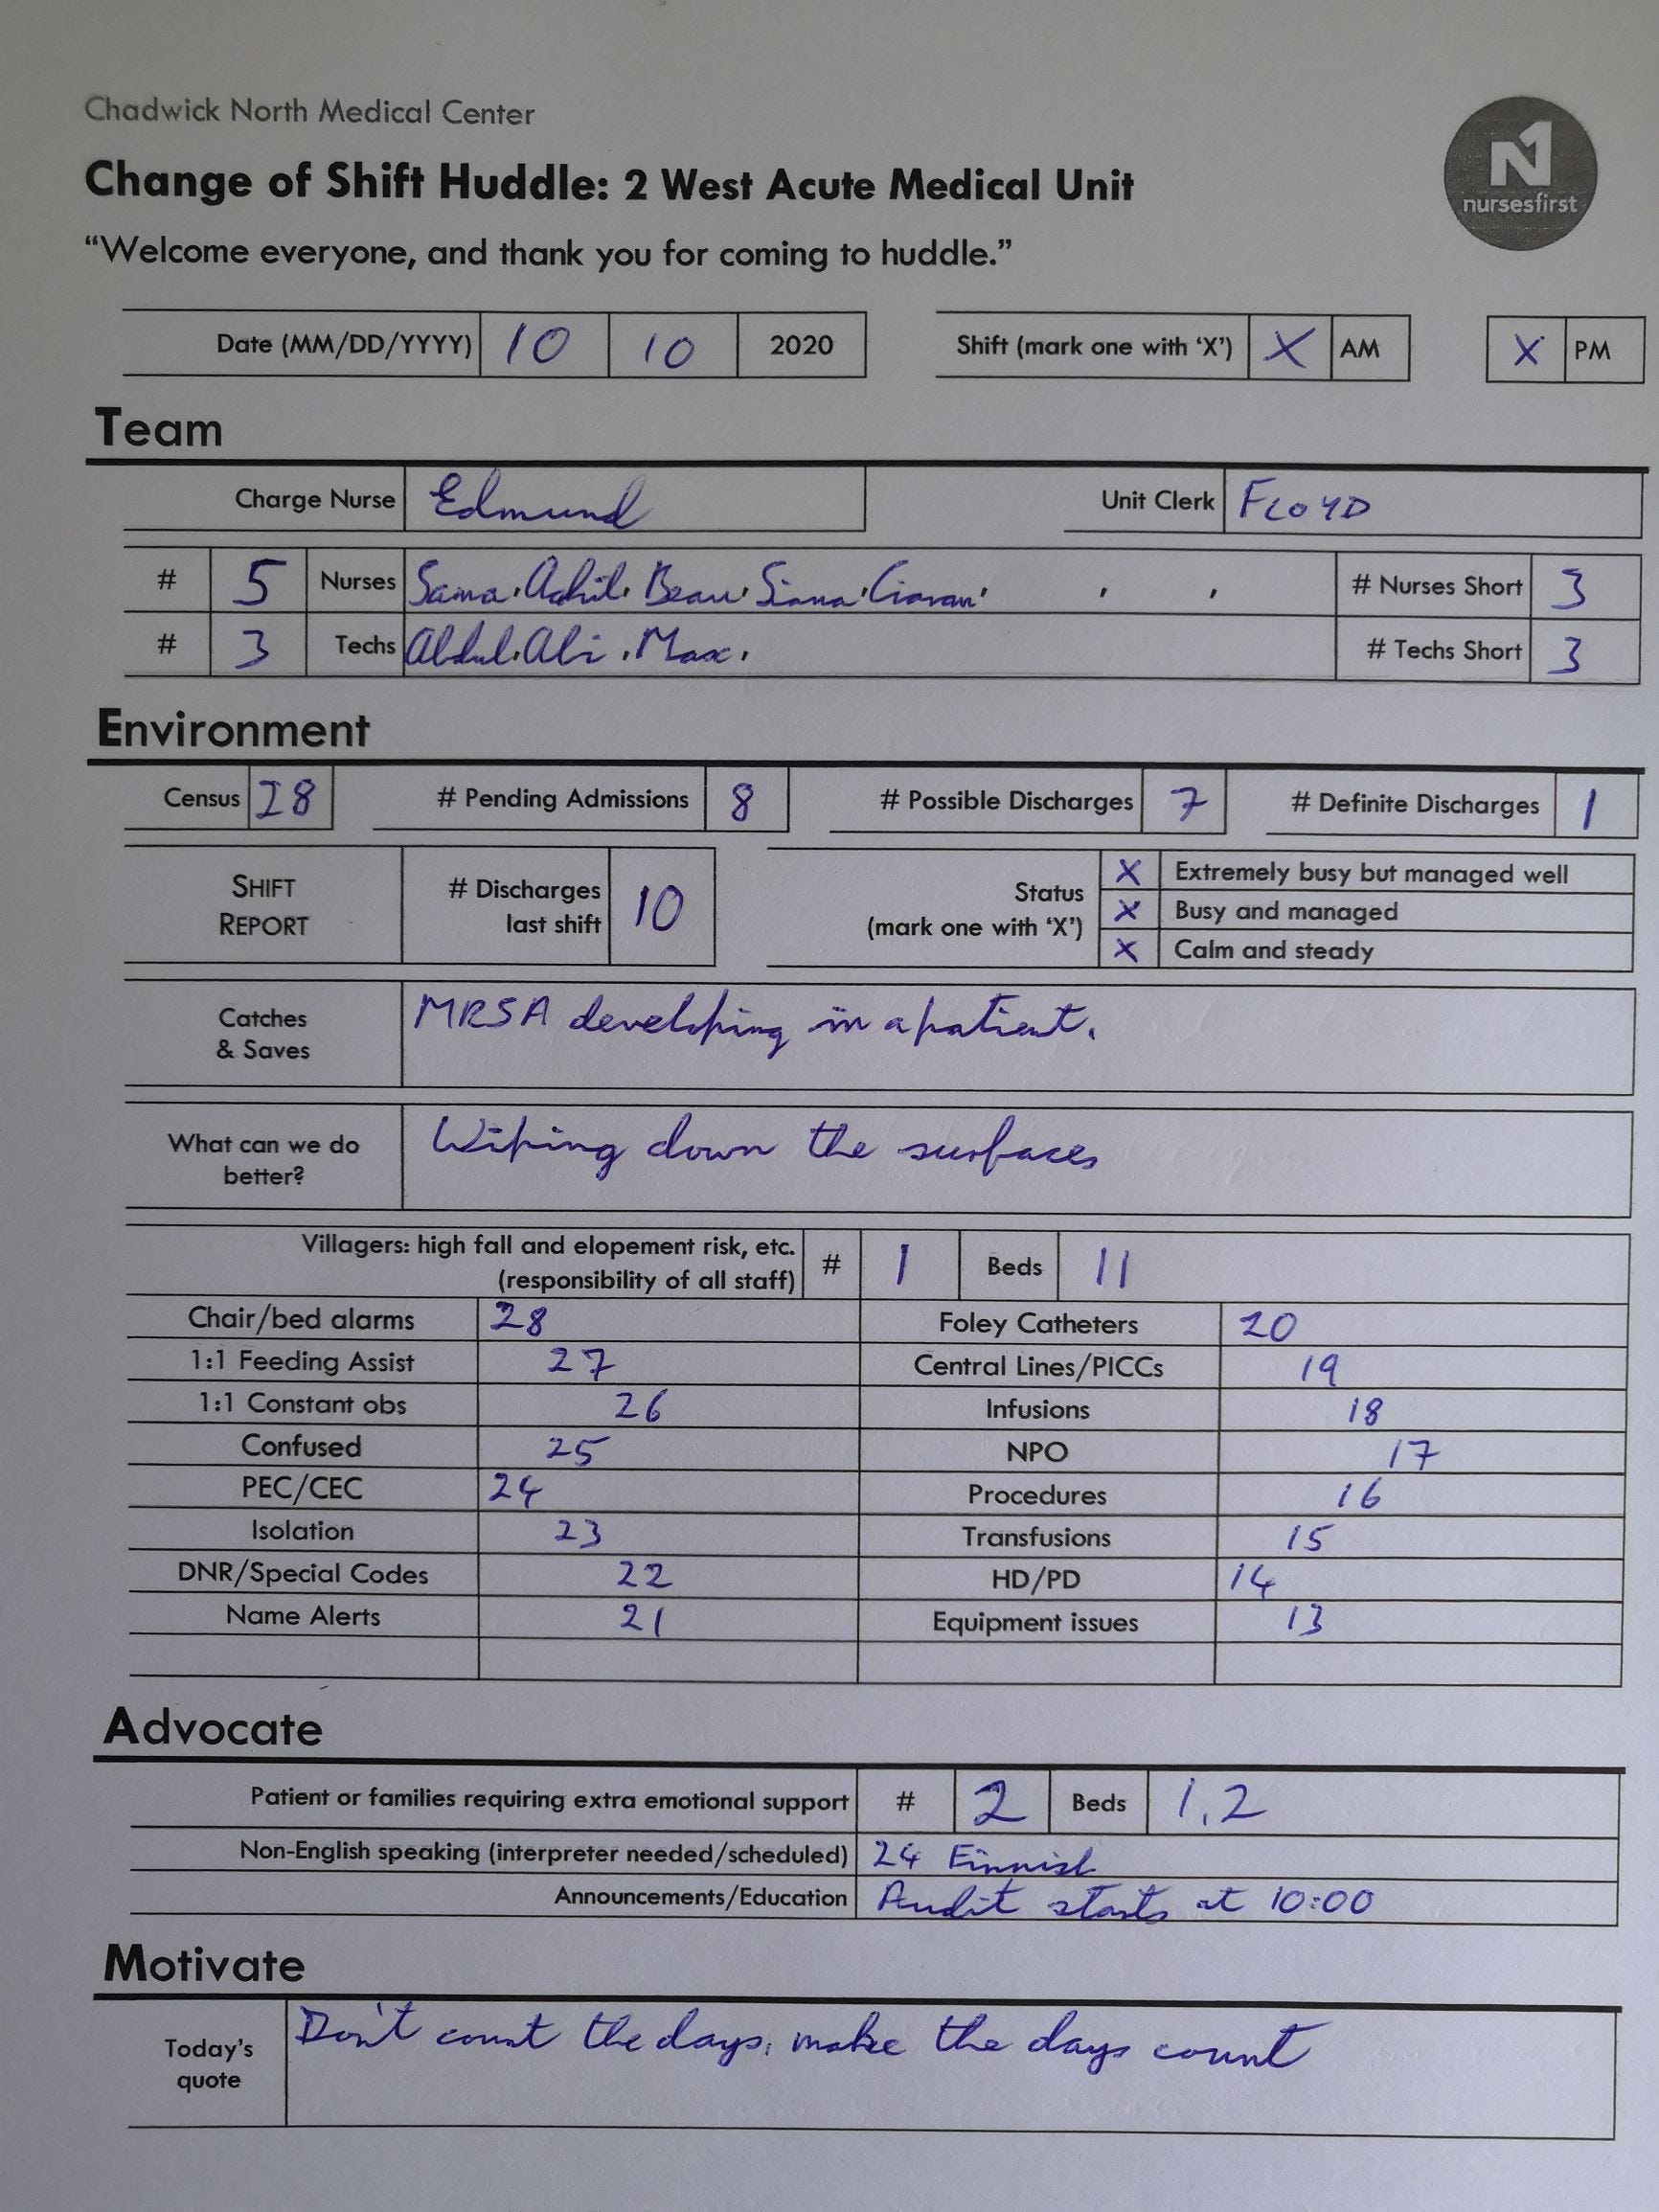 Chadwick North Medical Center
N1
nursesfirst
Change of Shift Huddle: 2 West Acute Medical Unit
“Welcome everyone, and thank you for coming to huddle.”
Date (MM/DD/YYYY) 10 10 2020 Shift (mark one with ‘X’) X AM X PM
Team
Charge Nurse Edmund Unit Clerk FLOYD
# 5 Nurses Sama, Aahil, Beau, Siana, Ciaran, , , # Nurses Short 3
# 3 Techs Abdul, Ali, Max, # Techs Short 3
Environment
Census 28 # Pending Admissions 8 # Possible Discharges 7 # Definite Discharges 1
SHIFT REPORT # Discharges last shift 10 Status (mark one with ‘X’)
X Extremely busy but managed well
X Busy and managed
X Calm and steady
Catches & Saves MRSA developing in a patient.
What can we do better? Wiping down the surfaces
Villagers: high fall and elopement risk, etc. (responsibility of all staff) # 1 Beds 11
Chair/bed alarms 28 Foley Catheters 20
1:1 Feeding Assist 27 Central Lines/PICCs 19
1:1 Constant obs 26 Infusions 18
Confused 25 NPO 17
PEC/CEC 24 Procedures 16
Isolation 23 Transfusions 15
DNR/Special Codes 22 HD/PD 14
Name Alerts 21 Equipment issues 13
Advocate
Patient or families requiring extra emotional support # 2 Beds 1,2
Non-English speaking (interpreter needed/scheduled) 24 Finnish
Announcements/Education Audit starts at 10:00
Motivate
Today’s quote Don't count the days, make the days count